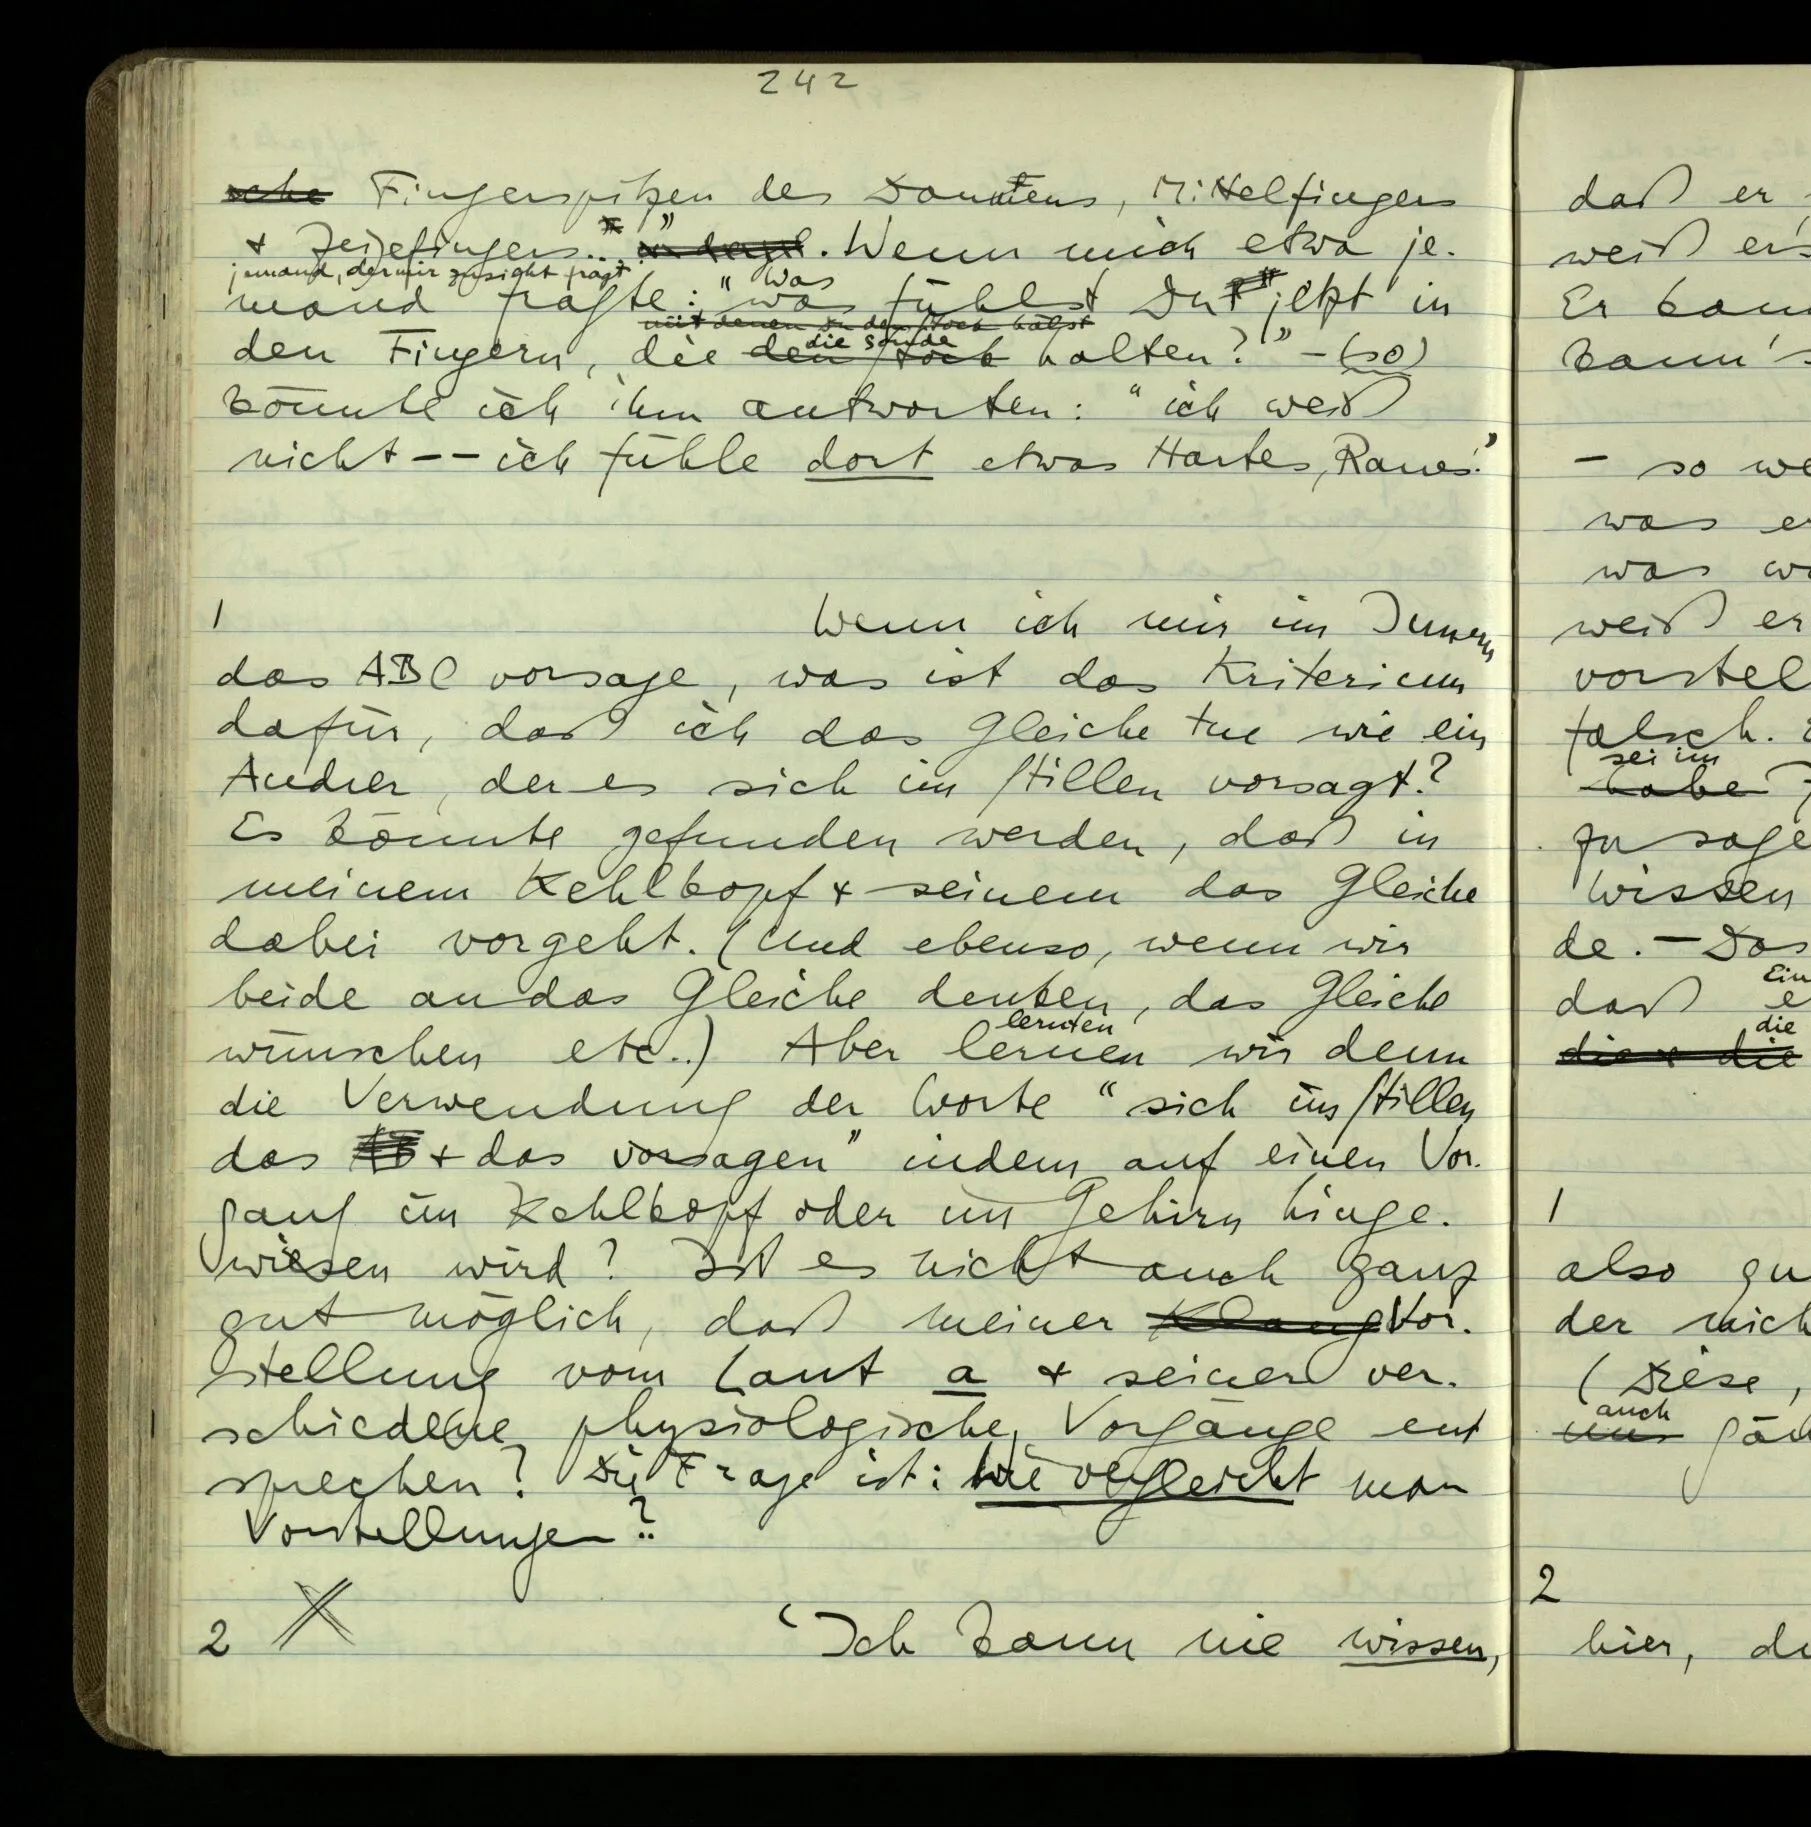 242
sche Fingerspitzen des Daumens, Mittelfingers
+ Zeigefingers..." u dergl. Wenn mich etwa je-
jemand, der mir zusieht fragt
Was
mand fragte: "was fühlst Du jetzt in
mit denen Du den Stock hältst
die Sonde
den Fingern, die den Stock halten?" – (so)
könnte ich ihm antworten: "ich weiß
nicht – – ich fühle dort etwas Hartes, Raues."
1
Wenn ich mir im Innern
das ABC vorsage, was ist das Kriterium
dafür, daß ich das Gleiche tue wie ein
Andrer, der es sich im Stillen vorsagt?
Es könnte gefunden werden, daß in
meinem Kehlkopf + seinem das Gleiche
dabei vorgeht. (Und ebenso, wenn wir
beide an das Gleiche denken, das Gleiche
wünschen etc..) Aber lernen wir denn
lernten
die Verwendung der Worte "sich im Stillen
das AB + das vorsagen" indem auf einen Vor-
gang im Kehlkopf oder im Gehirn hinge-
wiesen wird? Ist es nicht auch ganz
gut möglich, daß meiner Klang Vor-
stellung vom Laut a + seiner ver-
schiedene physiologische Vorgänge ent
sprechen? Die Frage ist: Wie vergleicht man
Vorstellungen?
2
'Ich kann nie wissen,
daß er
weiß er's
Er kann
kann's
– so we
was er
was
weiß er
vorstel
falsch.
sei im
habe
zu sage
Wissen
de. – Das
Ein
daß e
die
die + die
1
also gu
der mich
(Diese,
auch
uns
2
hier, du